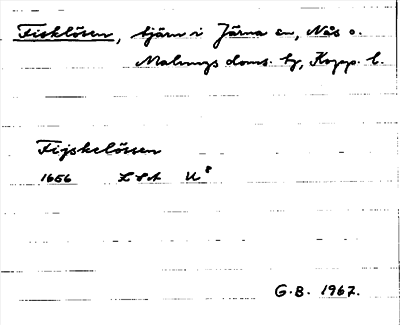 Fisklösen, tjärn i Järna sn, Nås o.
Malungs doms. hg, Kopp. l.
Fijskelössen
1656 LSA U⁸
G.B. 1967.